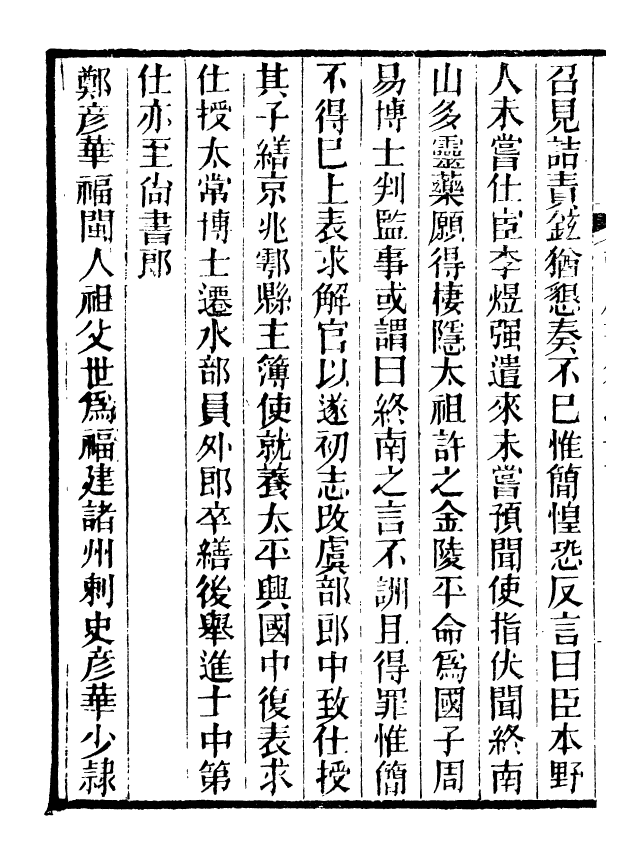 召見詰責鉉猶懇奏不已惟簡惶恐反言曰臣本野
人未嘗仕宦李煜强遣來未嘗預聞使指伏聞終南
山多靈藥願得棲隱太祖許之金陵平命爲國子周
易博士判監事或謂曰終南之言不詶且得罪惟簡
不得已上表求解官以遂初志改虞部郎中致仕授
其子繕京兆鄠縣主簿使就養太平興國中復表求
仕授太常博士遷水部員外郎卒繕後舉進士中第
仕亦至尙書郎
鄭彦華福閩人祖父世爲福建諸州刺史彦華少隷